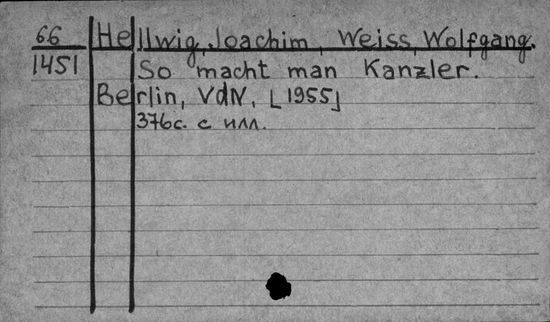 66 Hellwig, Joachim, Weiss, Wolfgang.
1451 So macht man Kanzler.
Berlin, VdN, [1955]
376с. с илл.